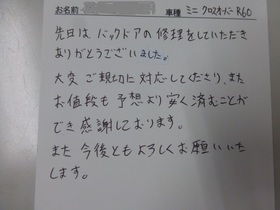 お名前 車種 ミニ クロスオーバー R60
先日は バックドアの修理をしていただき
ありがとうございました。
大変ご親切に対応してくださり、また
お値段も予想より安く済むことが
でき感謝しております。
また今後ともよろしくお願いいた
します。